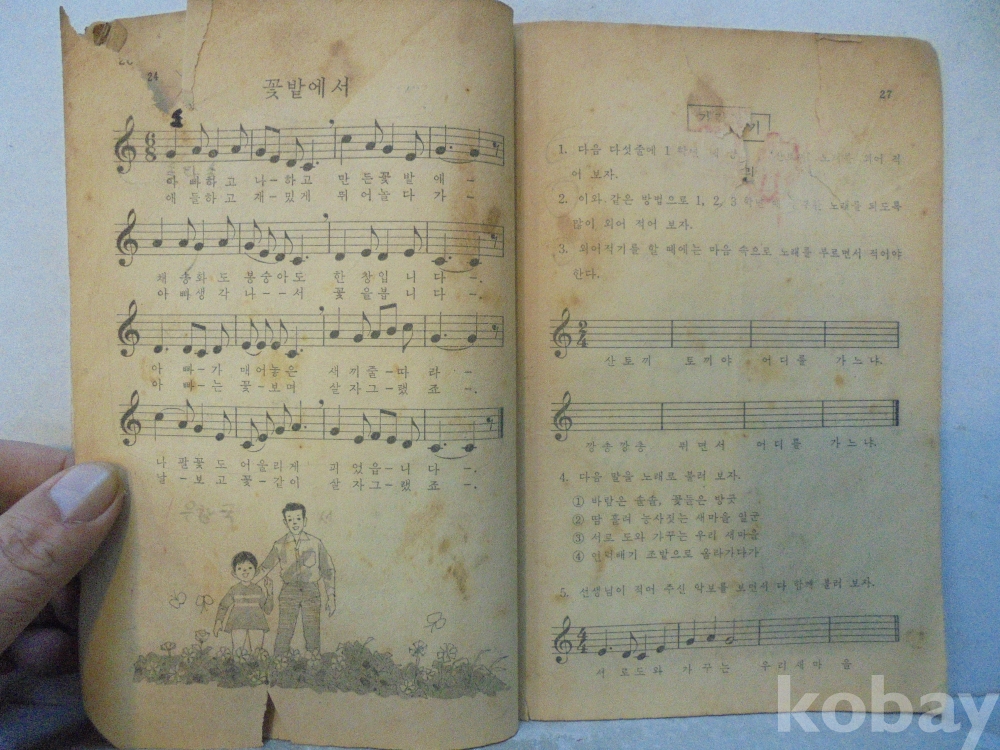 24
꽃밭에서
6
8
아 빠 하 고 나 – 하 고 만 든 꽃 밭 에 –
애 들 하 고 재 – 밌 게 뛰 어 놀 다 가 –
채 송 화 도 봉 숭 아 도 한 창 입 니 다 –.
아 빠 생 각 나 – – 서 꽃 을 봅 니 다 –.
아 빠 – 가 매 어 놓 은 새 끼 줄 – 따 라 –
아 빠 – 는 꽃 – 보 며 살 자 그 – 랬 죠 –.
나 팔 꽃 도 어 울 리 게 피 었 읍 – 니 다 –.
날 – 보 고 꽃 – 같 이 살 자 그 – 랬 죠 –.
27
1. 다음 다섯줄에 1 외어 적
어 보자.
2. 이와 같은 방법으로 1, 2, 3 노래를 되도록
많이 외어 적어 보자.
3. 외어적기를 할 때에는 마음 속으로 노래를 부르면서 적어야
한다.
2
4
산 토 끼 토 끼 야 어 디 를 가 느 냐.
깡 충 깡 충 뛰 면 서 어 디 를 가 느 냐.
4. 다음 말을 노래로 불러 보자.
① 바람은 솔솔, 꽃들은 방긋
② 땀 흘려 농사짓는 새마을 일군
③ 서로 도와 가꾸는 우리 새마을
④ 언덕배기 조밭으로 올라가다가
5. 선생님이 적어 주신 악보를 보면서 다 함께 불러 보자.
4
4
서 로 도 와 가 꾸 는 우 리 새 마 을
kobay